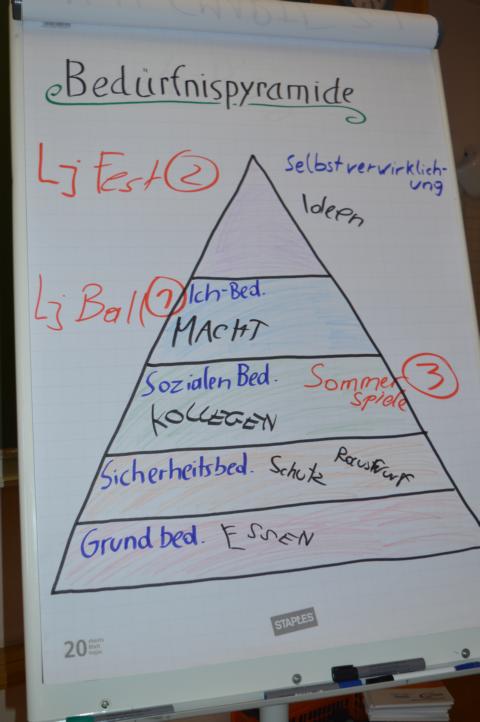 Bedürfnispyramide
Lj Fest ②
Selbstverwirklich-
ung
Ideen
Lj Ball ①
Ich-Bed.
MACHT
Sozialen Bed.
KOLLEGEN
Sommer ③
Spiele
Sicherheitsbed. Schutz Rauswurf
Grundbed. ESSEN
20
STAPLES